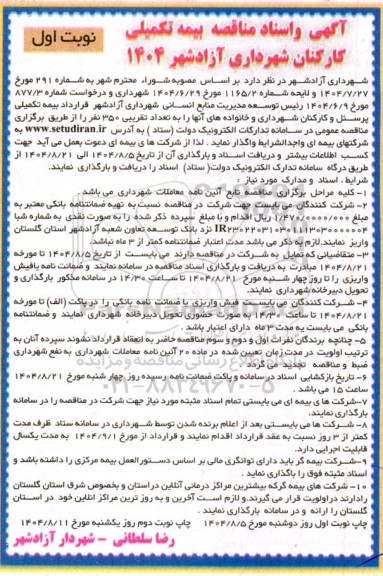 آگهی واسناد مناقصه بیمه تکمیلی
کارکنان شهرداری آزادشهر ۱۴۰۴
نوبت اول
شهرداری آزادشهر در نظر دارد بر اساس مصوبه شوراء محترم شهر به شماره ۲۹۱ مورخ
۱۴۰۴/۷/۲۷ و لایحه شماره ۱۱۶۵/۲ مورخ ۱۴۰۴/۶/۲۹ شهرداری و درخواست شماره ۸۷۷/۳
مورخ ۱۴۰۴/۶/۹ رئیس توسعه مدیریت منابع انسانی شهرداری آزادشهر قرارداد بیمه تکمیلی
پرسنل و کارکنان شهرداری و خانواده های آنها را به تعداد تقریبی ۳۵۰ نفر را از طریق برگزاری
مناقصه عمومی در سامانه تدارکات الکترونیک دولت (ستاد) به آدرس www.setudiran.ir به
شرکتهای بیمه ای واجدالشرایط واگذار نماید. لذا از شرکت ها ی بیمه ای دعوت بعمل می آید جهت
کسب اطلاعات بیشتر و دریافت اسناد و بارگذاری آن از تاریخ ۱۴۰۴/۸/۵ الی ۱۴۰۴/۸/۲۱ از
طریق درگاه سامانه تدارک الکترونیک دولت( ستاد) اسناد را دریافت و بارگذاری نمایند.
شرایط، اسناد و مدارک مورد نیاز :
۱-کلیه مراحل برگزاری مناقصه تابع آئین نامه معاملات شهرداری می باشد.
۲-شرکت کنندگان می بایست جهت شرکت در مناقصه نسبت به تهیه ضمانتنامه بانکی معتبر به
مبلغ ۱/۴۷۰/۰۰۰/۰۰۰ ریال اقدام و یا مبلغ سپرده ذکر شده را به صورت نقدی به شماره شبا
نزد بانک توسعه تعاون شعبه آزادشهر استان گلستان
واریز نمایند.لازم به ذکر می باشد مدت اعتبار ضمانتنامه کمتر از ۳ ماه نباشد.
۳-متقاضیانی که تمایل به شرکت در مناقصه دارند می بایست از تاریخ ۱۴۰۴/۸/۵ تا مورخه
۱۴۰۴/۸/۲۱ مبادرت به دریافت و بارگذاری اسناد مناقصه در سامانه نمایند و ضمانت نامه یا فیش
واریزی را تا روز چهار شنبه مورخ ۱۴۰۴/۸/۲۱ تا ساعت ۱۴/۳۰ در سامانه مذکور بارگذاری و
تحویل دبیرخانه شهرداری نمایند.
۴-شرکت کنندگان می بایست فیش واریزی یا ضمانت نامه بانکی را در پاکت (الف) تا مورخه
۱۴۰۴/۸/۲۱ تا ساعت ۱۴/۳۰ به صورت حضوری تحویل دبیرخانه شهرداری نمایند و ضمانتنامه
بانکی می بایست به مدت ۳ ماه دارای اعتبار باشد.
۵-چنانچه برندگان نفرات اول و دوم و سوم مناقصه حاضر به انعقاد قرارداد نشوند سپرده آنان به
ترتیب اولویت در مدت زمان تعیین شده در ماده ۲۰ آئین نامه معاملات شهرداری به نفع شهرداری
ضبط و مناقصه تجدید می گردد
۶-تاریخ بازگشایی اسناد در سامانه و پاکت ضمانت نامه رسیده روز چهار شنبه مورخ ۱۴۰۴/۸/۲۱
ساعت ۱۵ می باشد.
۷-شرکت ها ی بیمه ای می بایستی تمام اسناد مثبته مورد نیاز جهت شرکت در مناقصه را در سامانه
بارگذاری نمایند.
۸-شرکت ها می بایستی بعد از اعلام برنده شدن توسط شهرداری در سامانه ستاد ظرف مدت
کمتر از ۳ روز نسبت به عقد قرارداد اقدام نمایند و قرارداد از مورخ ۱۴۰۴/۹/۱ به مدت یکسال
قابلیت اجرایی دارد.
۹-شرکت بیمه گر باید دارای توانگری مالی بر اساس دستورالعمل بیمه مرکزی را داشته باشد و
اسناد مثبته فوق را بارگذاری نماید.
۱۰-شرکت های بیمه گر که بیشترین مراکز درمانی آنلاین در استان و بخصوص شرق استان گلستان
را دارند در اولویت قرار می گیرند.و لازم است آخرین و به روز ترین مراکز انلاین خود در استان
گلستان را ارائه و در سامانه بارگذاری نمایند.
چاپ نوبت اول روز دوشنبه مورخ ۱۴۰۴/۸/۵ چاپ نوبت دوم روز یکشنبه مورخ ۱۴۰۴/۸/۱۱
رضا سلطانی - شهردار آزادشهر